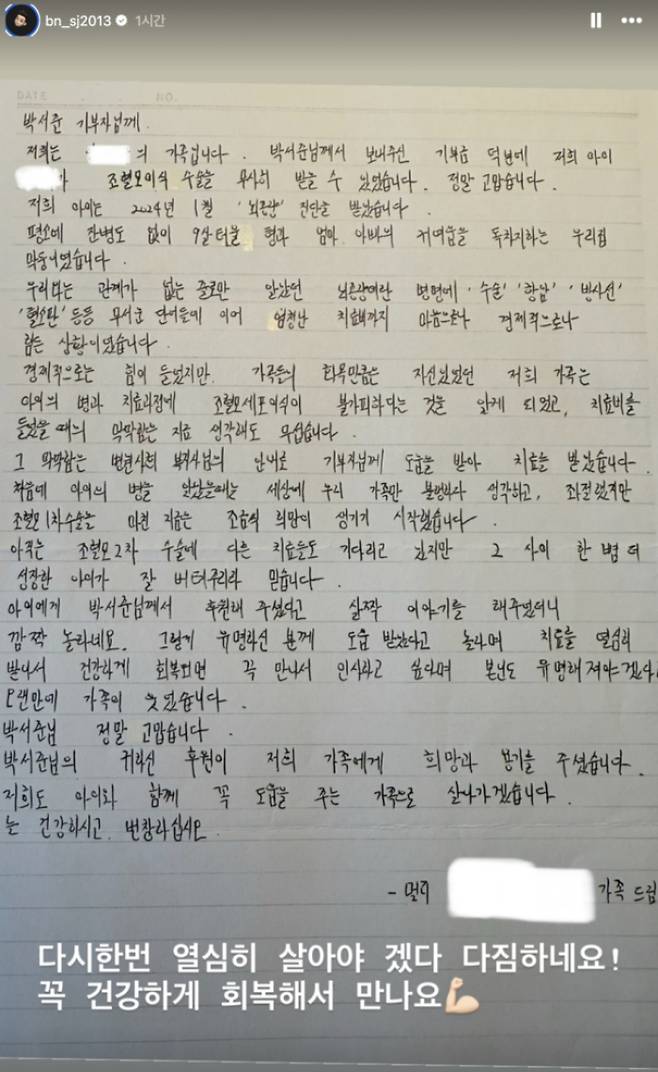 bn_sj2013 1시간
DATE . . . NO.
박서준 기부자님께.
저희는 의 가족입니다. 박서준님께서 보내주신 기부금 덕분에 저희 아이
가 조혈모이식 수술을 무사히 받을 수 있었습니다. 정말 고맙습니다.
저희 아이는 2024년 1월 '뇌종양' 진단을 받았습니다.
평소에 잔병도 없이 9살 터울 형과 엄마. 아빠의 귀여움을 독차지하는 우리집
막둥이였습니다.
우리와는 관계가 없는 줄로만 알았던 뇌종양이란 병명에 '수술' '항암' '방사선'
'혈소판' 등등 무서운 단어들에 이어 엄청난 치료비까지 마음으로나 경제적으로나
힘든 상황이었습니다.
경제적으로는 힘이 들었지만. 가족들의 화목만큼은 자신있었던 저희 가족은
아이의 병과 치료과정에 조혈모세포이식이 불가피하다는 것을 알게 되었고, 치료비를
들었을 때의 막막함은 지금 생각해도 무섭습니다.
그 막막함은 병원사회복지사님의 안내로 기부자님께 도움을 받아 치료를 받았습니다.
처음에 아이의 병을 알았을때는 세상에 우리 가족만 불행하다 생각하고, 좌절했지만
조혈모 1차수술을 마친 지금은 조금씩 희망이 생기기 시작했습니다.
아직은 조혈모 2차 수술에 다른 치료들도 기다리고 있지만 그 사이 한 뼘 더
성장한 아이가 잘 버텨주리라 믿습니다.
아이에게 박서준님께서 후원해 주셨다고 살짝 이야기를 해주었더니
깜짝 놀라네요. 그렇게 유명하신 분께 도움 받았다고 놀라며 치료를 열심히
받아서 건강하게 회복되면 꼭 만나서 인사하고 싶다며 본인도 유명해져야겠다
오랜만에 가족이 웃었습니다.
박서준님 정말 고맙습니다.
박서준님의 귀하신 후원이 저희 가족에게 희망과 용기를 주셨습니다.
저희도 아이와 함께 꼭 도움을 주는 가족으로 살아가겠습니다.
늘 건강하시고. 번창하십시오.
- 멀리 가족 드림
다시한번 열심히 살아야 겠다 다짐하네요!
꼭 건강하게 회복해서 만나요💪🏻